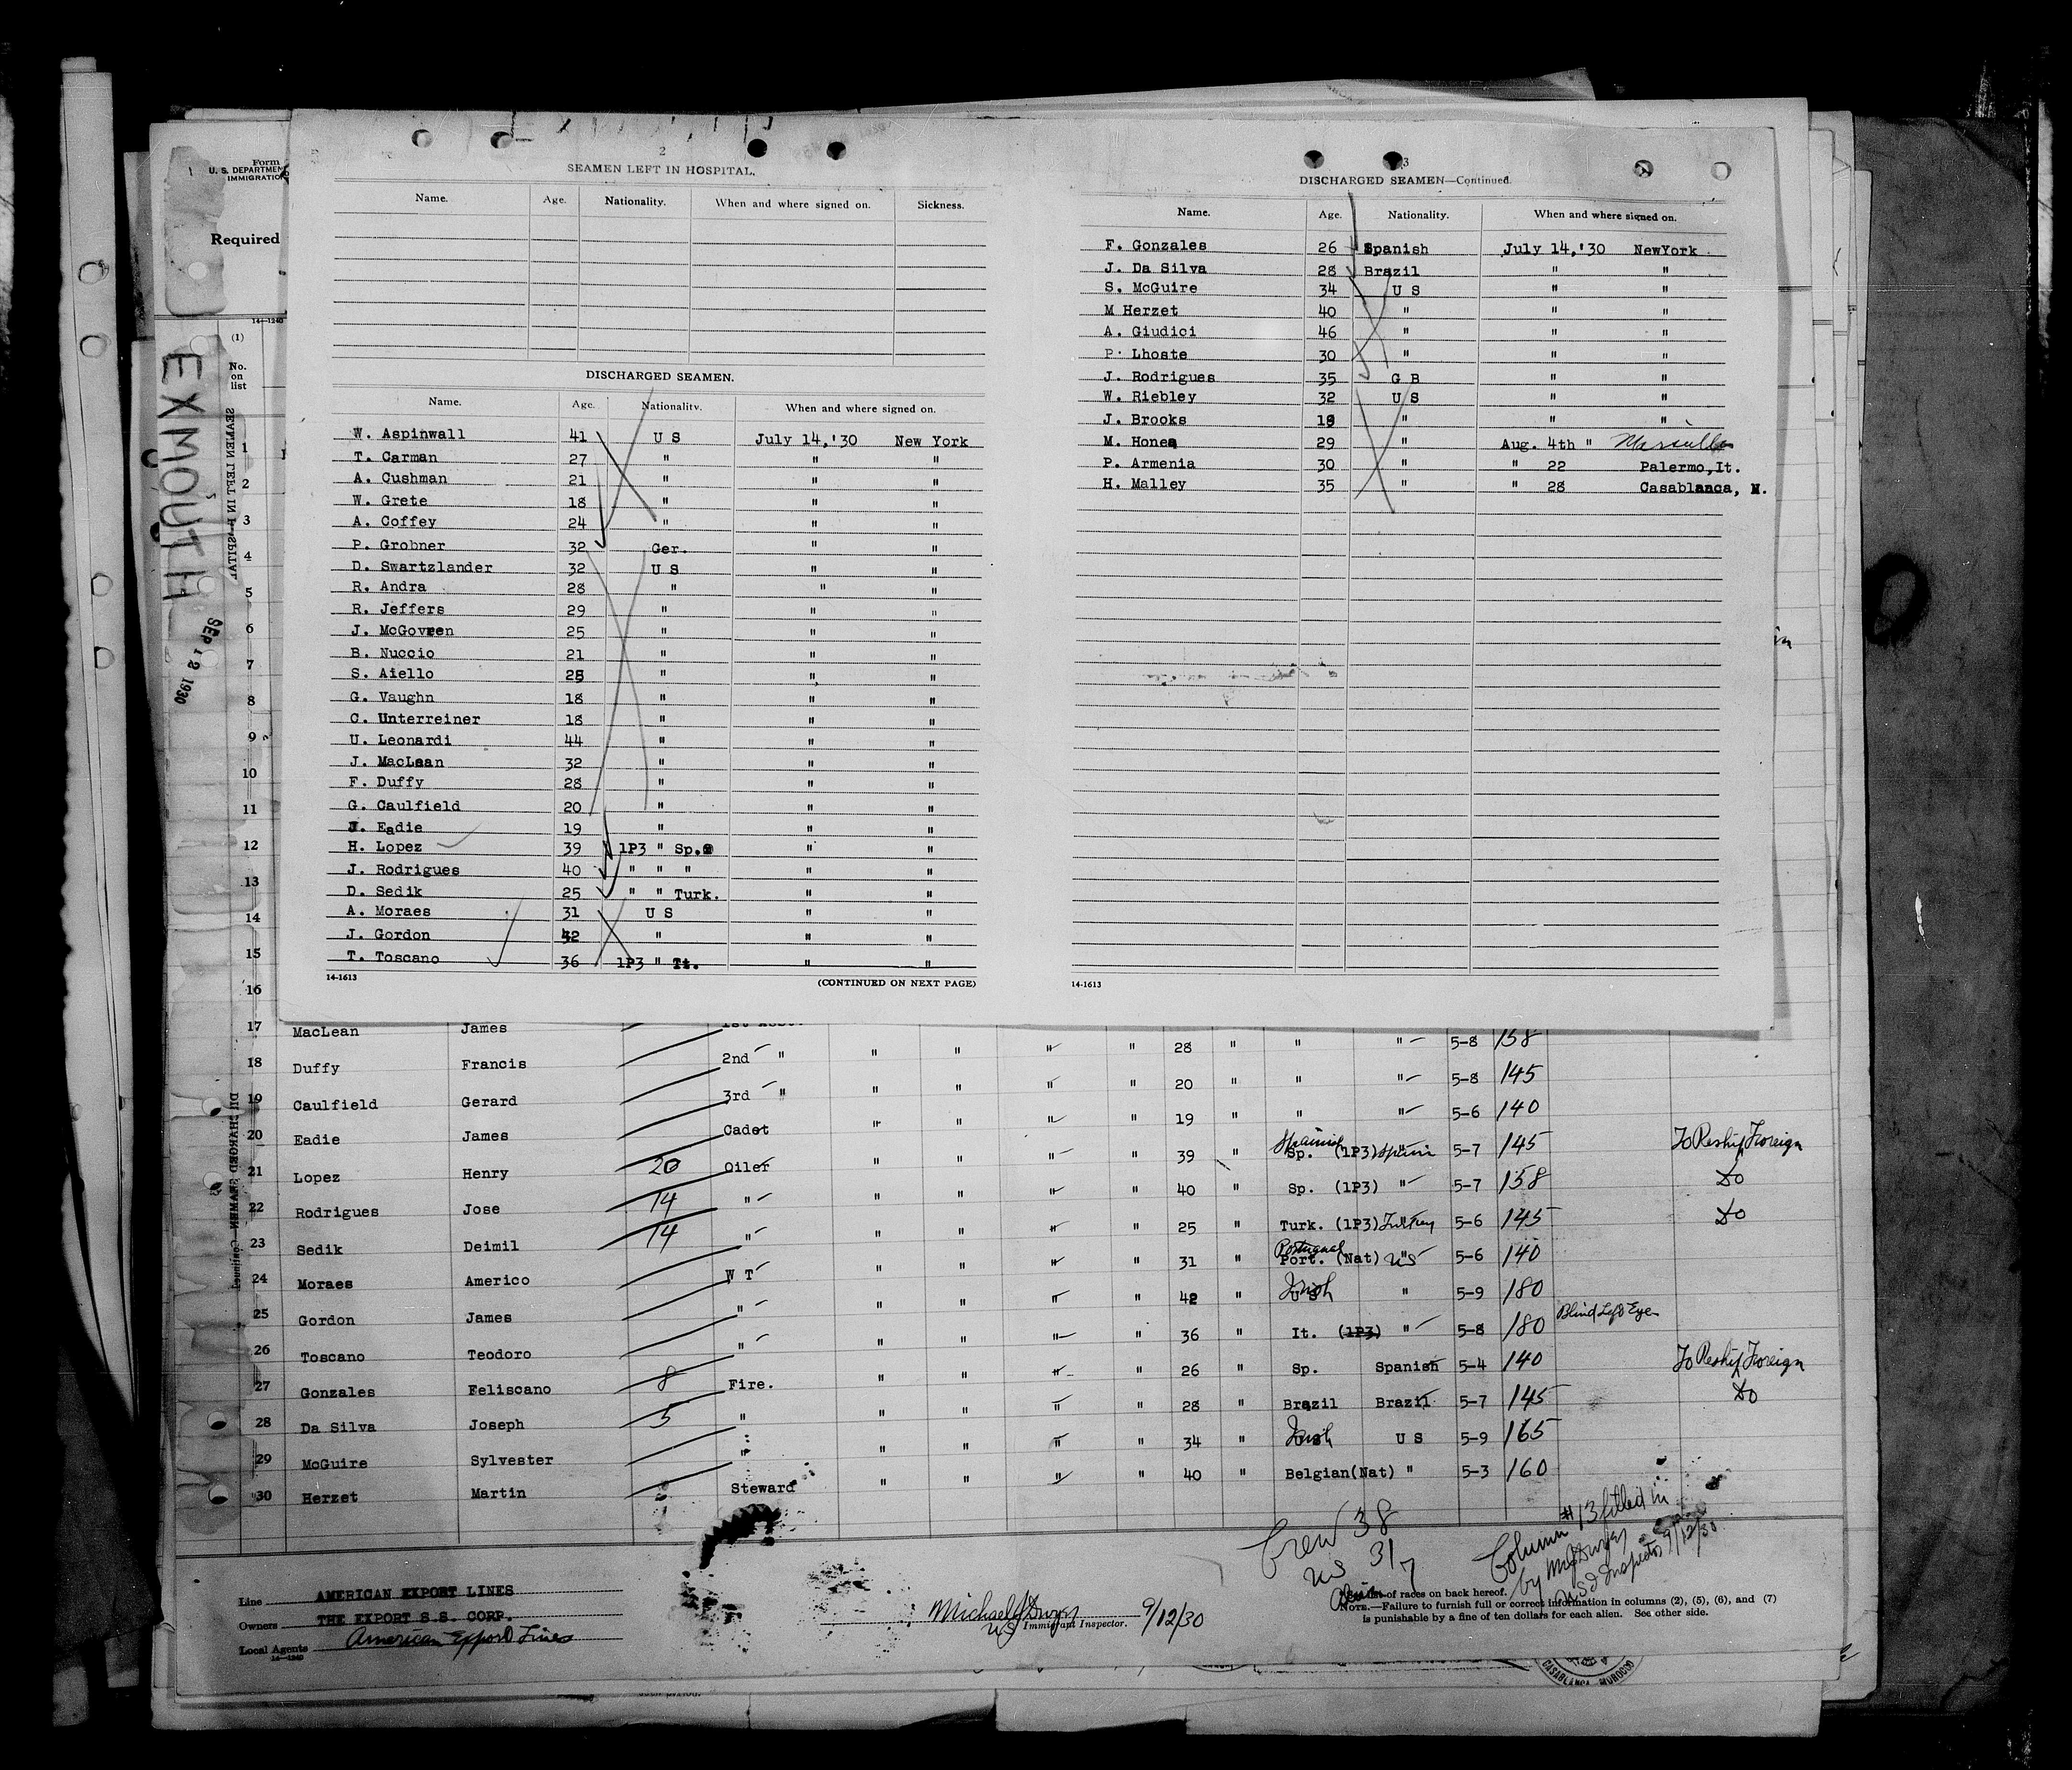 Form
U. S. DEPARTMEN
IMMIGRATIO
Required
14-1240
(1)
No.
on
list
EXMOUTH
SEP 12 1930
SEAMEN LEFT IN HOSPITAL
2
SEAMEN LEFT IN HOSPITAL.
Name. Age. Nationality. When and where signed on. Sickness.
DISCHARGED SEAMEN.
Name. Age. Nationality. When and where signed on.
W. Aspinwall 41 U S July 14,'30 New York
T. Carman 27 " " "
A. Cushman 21 " " "
W. Grete 18 " " "
A. Coffey 24 " " "
P. Grobner 32 Ger. " "
D. Swartzlander 32 U S " "
R. Andra 28 " " "
R. Jeffers 29 " " "
J. McGovren 25 " " "
B. Nuccio 21 " " "
S. Aiello 28 " " "
G. Vaughn 18 " " "
C. Unterreiner 18 " " "
U. Leonardi 44 " " "
J. MacLean 32 " " "
F. Duffy 28 " " "
G. Caulfield 20 " " "
J. Eadie 19 " " "
H. Lopez 39 1P3 " Sp. " "
J. Rodrigues 40 " " " " "
D. Sedik 25 " " Turk. " "
A. Moraes 31 U S " "
J. Gordon 42 " " "
T. Toscano 36 1P3 " It. " "
14-1613 (CONTINUED ON NEXT PAGE)
3
DISCHARGED SEAMEN—Continued.
Name. Age. Nationality. When and where signed on.
F. Gonzales 26 Spanish July 14,'30 NewYork
J. Da Silva 28 Brazil " "
S. McGuire 34 U S " "
M Herzet 40 " " "
A. Giudici 46 " " "
P. Lhoste 30 " " "
J. Rodrigues 35 G B " "
W. Riebley 32 U S " "
J. Brooks 18 " " "
M. Honea 29 " Aug. 4th " Marseille
P. Armenia 30 " " 22 Palermo,It.
H. Malley 35 " " 28 Casablanca, M.
14-1613
1
2
3
4
5
6
7
8
9
10
11
12
13
14
15
16
DISCHARGED SEAMEN—Continued
17 MacLean James 1st Asst.
18 Duffy Francis 2nd " " " " " 28 " " " 5-8 158
19 Caulfield Gerard 3rd " " " " " 20 " " " 5-8 145
20 Eadie James Cadet " " " " 19 " " " 5-6 140
21 Lopez Henry 20 Oiler " " " " 39 " Spanish Sp. (1P3) Spain 5-7 145 To Reship Foreign
22 Rodrigues Jose 14 " " " " " 40 " Sp. (1P3) " 5-7 158 Do
23 Sedik Deimil 14 " " " " " 25 " Turk. (1P3) Turkey 5-6 145 Do
24 Moraes Americo W T " " " " 31 " Portugual Port. (Nat) US 5-6 140
25 Gordon James " " " " " 42 " Irish U S " 5-9 180
26 Toscano Teodoro " " " " " 36 " It. (1P3) " 5-8 180 Blind Left Eye
27 Gonzales Feliscano 8 Fire. " " " " 26 " Sp. Spanish 5-4 140 To Reship Foreign
28 Da Silva Joseph 5 " " " " " 28 " Brazil Brazil 5-7 145 Do
29 McGuire Sylvester " " " " " 34 " Irish U S 5-9 165
30 Herzet Martin Steward " " " " 40 " Belgian(Nat) " 5-3 160
Crew 38
US 31
7
Column #13 filled in
by
US Inspector 9/12/30
Line AMERICAN EXPORT LINES
Owners THE EXPORT S.S. CORP.
Local Agents American Export Lines
14-1240
Michael J Dwyer 9/12/30
US Immigrant Inspector.
list of races on back hereof.
NOTE.—Failure to furnish full or correct information in columns (2), (5), (6), and (7)
is punishable by a fine of ten dollars for each alien. See other side.
CASABLANCA, MOROCCO